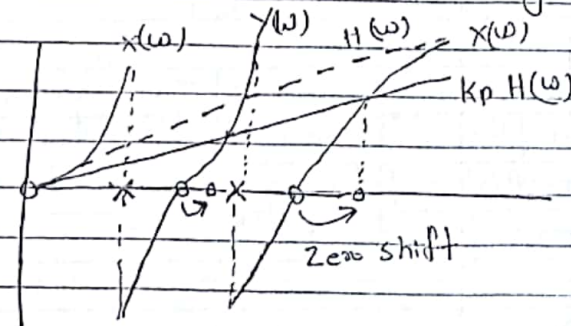 X(ω) Y(ω) H(ω) X(ω)
Kp H(ω)
Zero shift